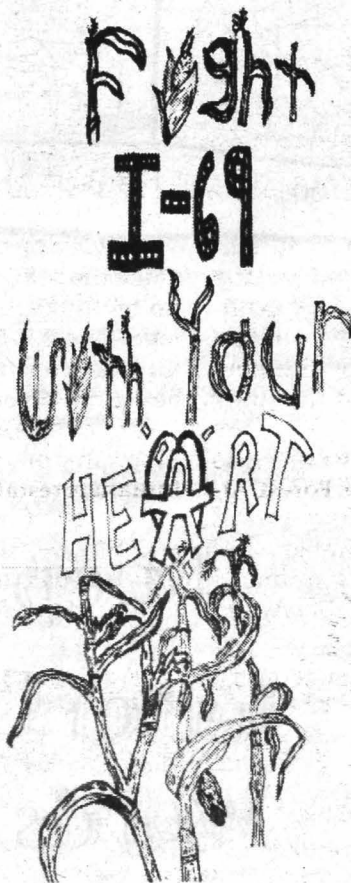 Fight
I-69
with Your
HEART